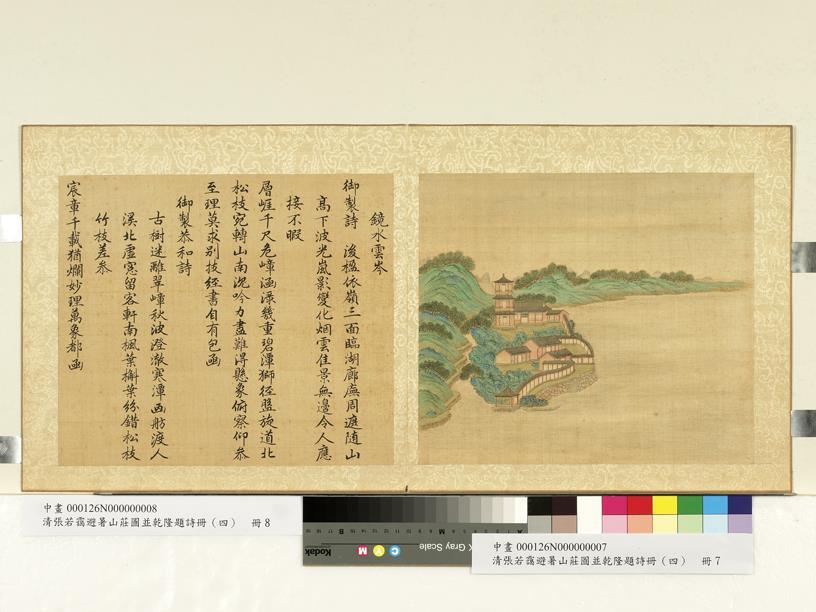 鏡水雲岑
御製詩 後楹依嶺三面臨湖廊廡周遮隨山
高下波光嵐影變化烟雲佳景無邊令人應
接不暇
層崖千尺危嶂涵淥幾重碧潭獅徑盤旋道北
松枝宛轉山南沉吟力盡難得懸象俯察仰叅
至理莫求别技經書自有包函
御製恭和詩
古樹迷離翠嶂秋波澄澈寒潭画舫渡人
溪北虛窓留客軒南楓葉槲葉紛錯松枝
竹枝差叅
宸章千載猶爛妙理萬象都函
中畫 000126N000000008
清張若靄避暑山莊圖並乾隆題詩冊（四） 冊8
Kodak
M Y C
Gray Scale
中畫 000126N000000007
清張若靄避暑山莊圖並乾隆題詩冊（四） 冊7